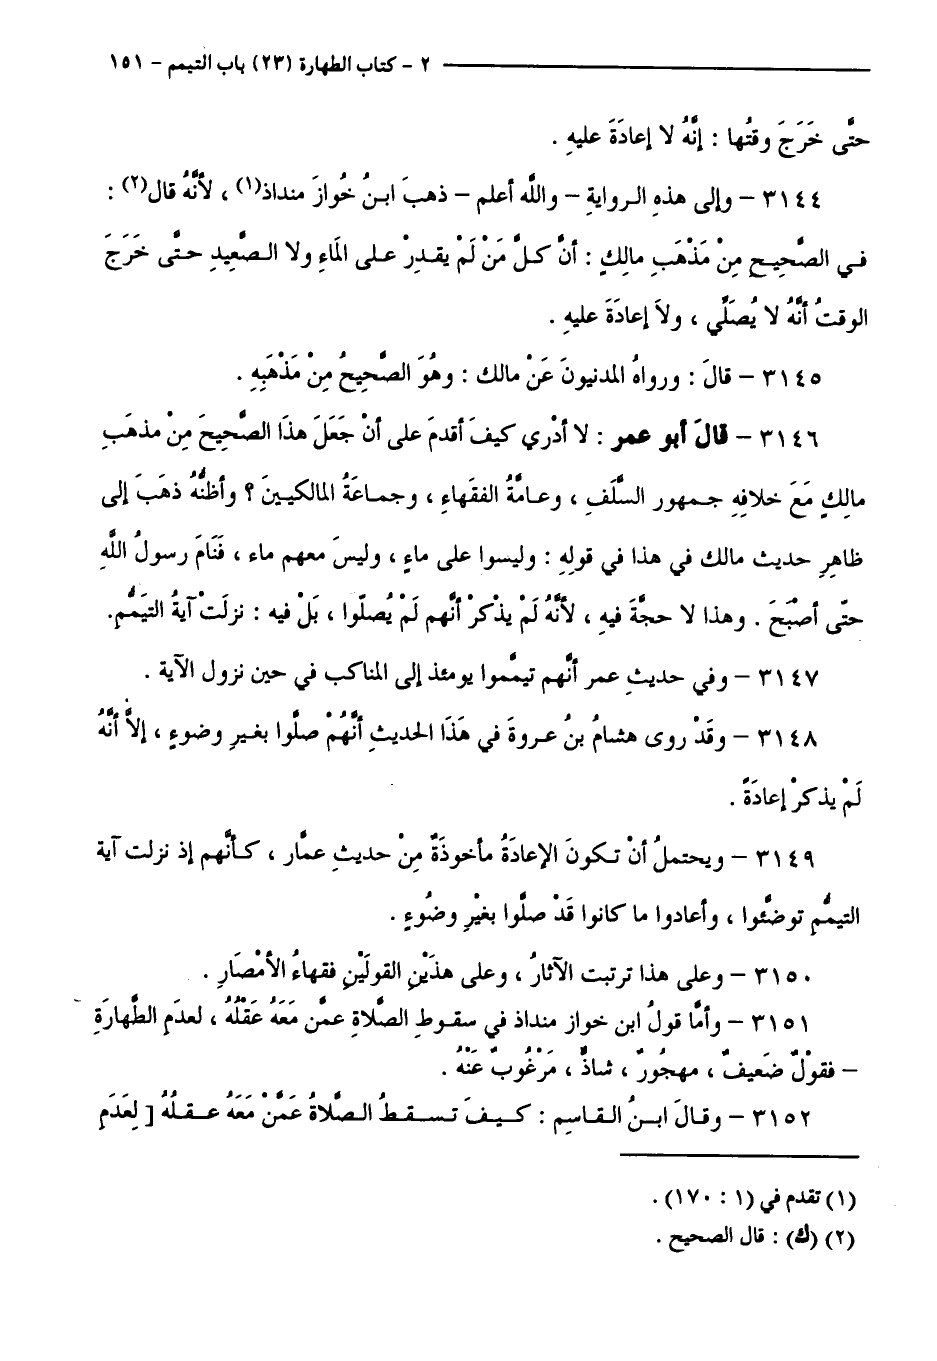 ٢ - كتاب الطهارة (٢٣) باب التيمم - ١٥١
حتَّى خَرَجَ وقتُها : إنَّهُ لا إعادَةَ عليهِ .
٣١٤٤ - وإلى هذهِ الروايةِ - واللَّه أعلم - ذهبَ ابنُ خُوازَ منداذ(١) ، لأنَّهُ قال(٢) :
في الصَّحِيحِ مِنْ مَذْهَبِ مالِكٍ : أنَّ كلَّ مَنْ لَمْ يقدِرْ على المَاءِ ولا الصَّعِيدِ حتَّى خَرَجَ
الوقتُ أنَّهُ لا يُصَلَّي ، ولاَ إعادَةَ عليهِ .
٣١٤٥ - قالَ : ورواهُ المدنيونَ عَنْ مالك : وهُوَ الصَّحِيحُ مِنْ مَذْهَبِهِ .
٣١٤٦ - قالَ أبو عمر : لا أدْري كيفَ أقدمَ على أنْ جَعَلَ هذَا الصَّحيحَ مِنْ مذهَبِ
مالِكٍ مَعَ خلافِهِ جمهور السَّلَفِ ، وعامَّةُ الفقَهاءِ ، وجماعَةُ المالكيينَ ؟ وأظنُّهُ ذهَبَ إلى
ظاهِرِ حديث مالك في هذا في قولِهِ : وليسوا على ماءٍ ، وليسَ معهم ماء ، فَنَامَ رسولُ اللَّهِ
حتّى أصْبَحَ . وهذا لا حجَّةَ فيهِ ، لأنَّهُ لَمْ يذْكرْ أنَّهم لَمْ يُصلّوا ، بَلْ فيه : نزلَتْ آيةُ التيَمُّم.
٣١٤٧ - وفي حديثِ عمر أنَّهم تيمَّموا يومئذ إلى المناكب في حين نزول الآية .
٣١٤٨ - وقَدْ روى هشامُ بنُ عروةَ في هَذَا الحديثِ أنَّهُمْ صلَّوا بغيرِ وضوءٍ ، إلاَّ أنَّهُ
لَمْ يذكرْ إعادَةً .
٣١٤٩ - ويحتملُ أنْ تكونَ الإعادَةُ مأخوذَةٌ مِنْ حديثِ عمَّار ، كأنَّهم إذ نزلت آية
التيمُّمِ توضَّئوا ، وأعادوا ما كانوا قَدْ صلَّوا بغيْرِ وضُوءٍ .
٣١٥٠ - وعلى هذا ترتبت الآثارُ ، وعلى هذَيْنِ القولَيْنِ فقهاءُ الأمْصَارِ .
٣١٥١ - وأمَّا قولُ ابن خواز منداذ في سقوطِ الصَّلاةِ عمَّن مَعَهُ عَقْلُهُ ، لعدَمِ الطَّهارَةِ
- فقوْلٌ ضَعيفٌ ، مهجُورٌ ، شاذٌّ ، مَرْغُوبٌ عَنْهُ .
٣١٥٢ - وقالَ ابنُ القاسِم : كيفَ تسقطُ الصَّلاةُ عَمَّنْ مَعَهُ عقلُهُ [ لِعَدَمِ
(١) تقدم في (١ : ١٧٠) .
(٢) (ك) : قال الصحيح .